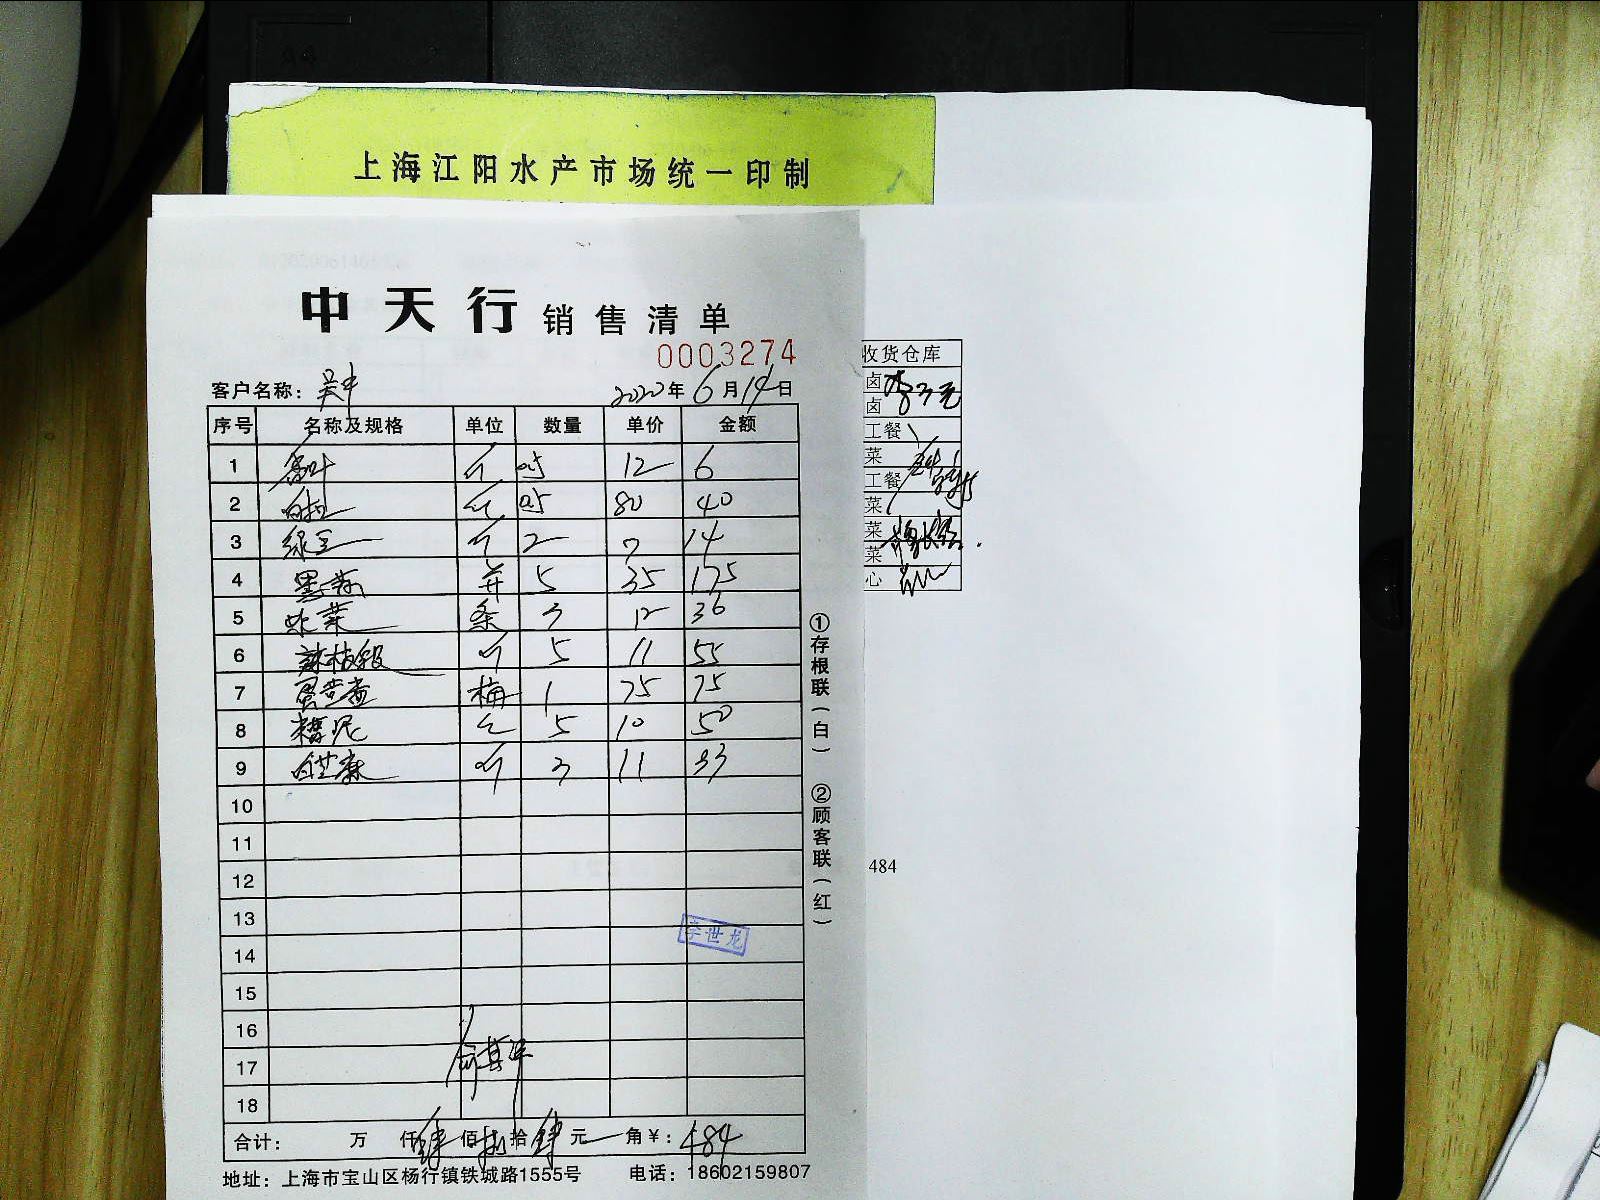 上海江阳水产市场统一印制
中天行 销售清单
0003274
客户名称： 2020年6月14日
序号 名称及规格 单位 数量 单价 金额
1 香叶 斤 0.5 12 6
2 0.5 80 40
3 绿豆 斤 2 7 14
4 5 35 175
5 紫菜 条 3 12 36
6 辣椒段 斤 5 11 55
7 桶 1 75 75
8 5 10 50
9 白芝麻 斤 3 11 33
10
11
12
13
14
15
16
17
18
李世龙
合计： 万 仟肆佰捌拾肆元 角￥：484
地址：上海市宝山区杨行镇铁城路1555号 电话：18602159807
①存根联（白）
②顾客联（红）
收货仓库
卤
卤
工餐
菜
工餐
菜
菜
菜
心
484